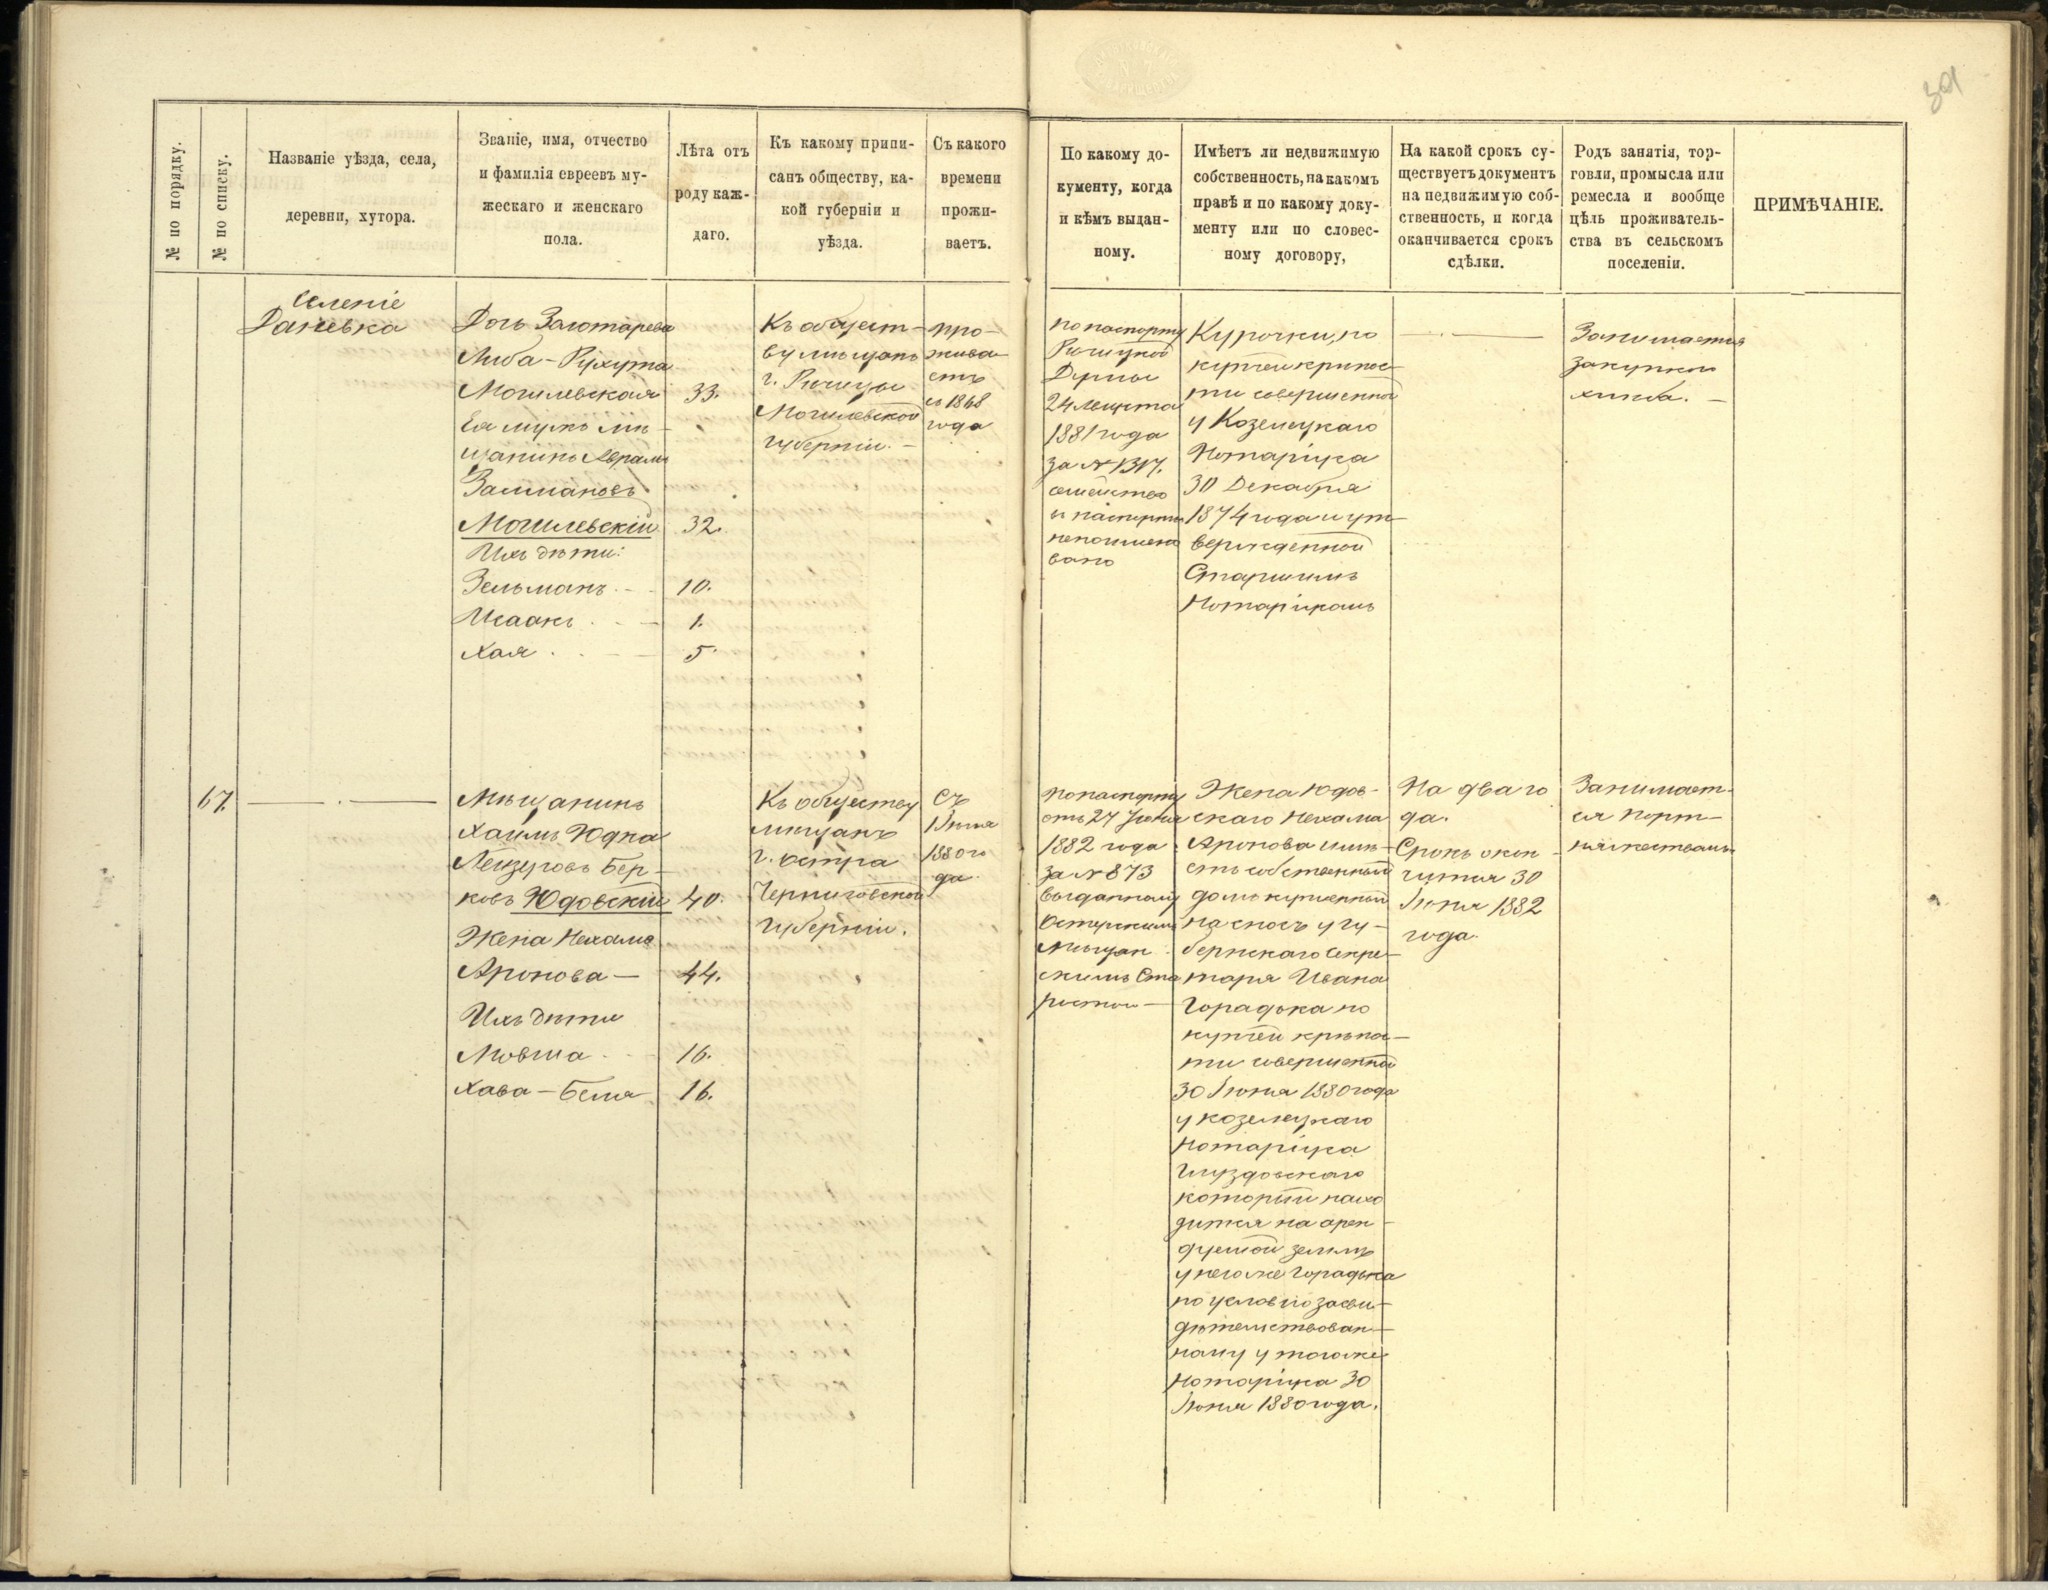 39
№ по порядку.
№ по списку.
Названіе уѣзда, села,
деревни, хутора.
Званіе, имя, отчество
и фамилія евреевъ му-
жескаго и женскаго
пола.
Лѣта отъ
роду каж-
даго.
Къ какому припи-
санъ обществу, ка-
кой губерніи и
уѣзда.
Съ какого
времени
прожи-
ваетъ.
По какому до-
кументу, когда
и кѣмъ выдан-
ному.
Имѣетъ ли недвижимую
собственность, на какомъ
правѣ и по какому доку-
менту или по словес-
ному договору,
На какой срокъ су-
ществуетъ документъ
на недвижимую соб-
ственность, и когда
оканчивается срокъ
сдѣлки.
Родъ занятія, тор-
говли, промысла или
ремесла и вообще
цѣль проживатель-
ства въ сельскомъ
поселеніи.
ПРИМѢЧАНІЕ.
Селеніе
Даневка
Дочь Золотарева
Либа-
Могилевская
Ея мужъ мѣ-
щанинъ Аврамъ
Залмановъ
Могилевскій
Ихъ дѣти:
Зельманъ
Исаакъ
Хая
33.
32.
10.
1.
5.
Къ общест-
ву мѣщанъ
г.
Могилевской
губерніи.
про-
жива-
етъ
съ 1868
года
по паспорту
Думы
24 Августа
1881 года
за № 1317.
семейство
въ паспортѣ
непоимено
вано
по
купчей крѣпос-
ти совершенной
у Козелецкаго
Нотаріуса
30 Декабря
1874 года и ут-
вержденной
Старшимъ
Нотаріусомъ
Занимается
закупкою
хлѣба.
67.
Мѣщанинъ
Хаимъ Юдка
Лейзеровъ Бер-
ковъ Юдовскій
Жена Нехама
Аронова
Ихъ дѣти
Мовша
Хава-Бейля
40.
44.
16.
16.
Къ обществу
мѣщанъ
г. Остра
Черниговской
губерніи.
Съ
Іюня
1880 го
да.
по паспорту
отъ 27 Іюня
1882 года
за № 873
выданному
Остерскимъ
Мѣщан
скимъ Ста
ростою
Жена Юдов-
скаго Нехама
Аронова имѣ-
етъ собственный
домъ купленный
на сносъ у гу-
бернскаго секре-
таря Ивана
Горадька по
купчей крѣпос-
ти совершенной
30 Іюня 1880 года
у козелецкаго
Нотаріуса
который нахо
дится на арен-
дуемой землѣ
у него же Горадька
по условію засви-
дѣтельствован-
ному у того же
Нотаріуса 30
Іюня 1880 года.
На два го
да.
Срокъ окон-
чится 30
Іюня 1882
года.
Занимает-
ся порт-
няжествомъ